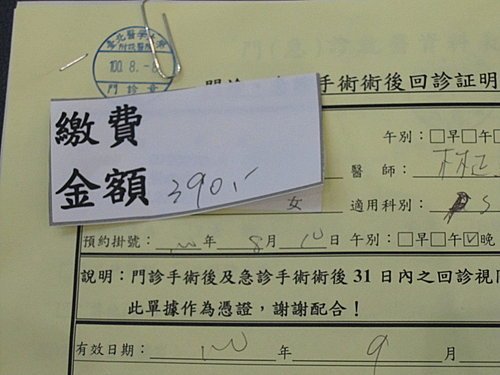 臺北醫學大學
附設醫院
100. 8. -
門診章
手術術後回診証明
繳費
金額 390.-
午別：□早□午
醫師：林
女 適用科別： S
預約掛號：100年8月10日 午別：□早□午☑晚
說明：門診手術後及急診手術術後31日內之回診視同
此單據作為憑證，謝謝配合！
有效日期：100年9月